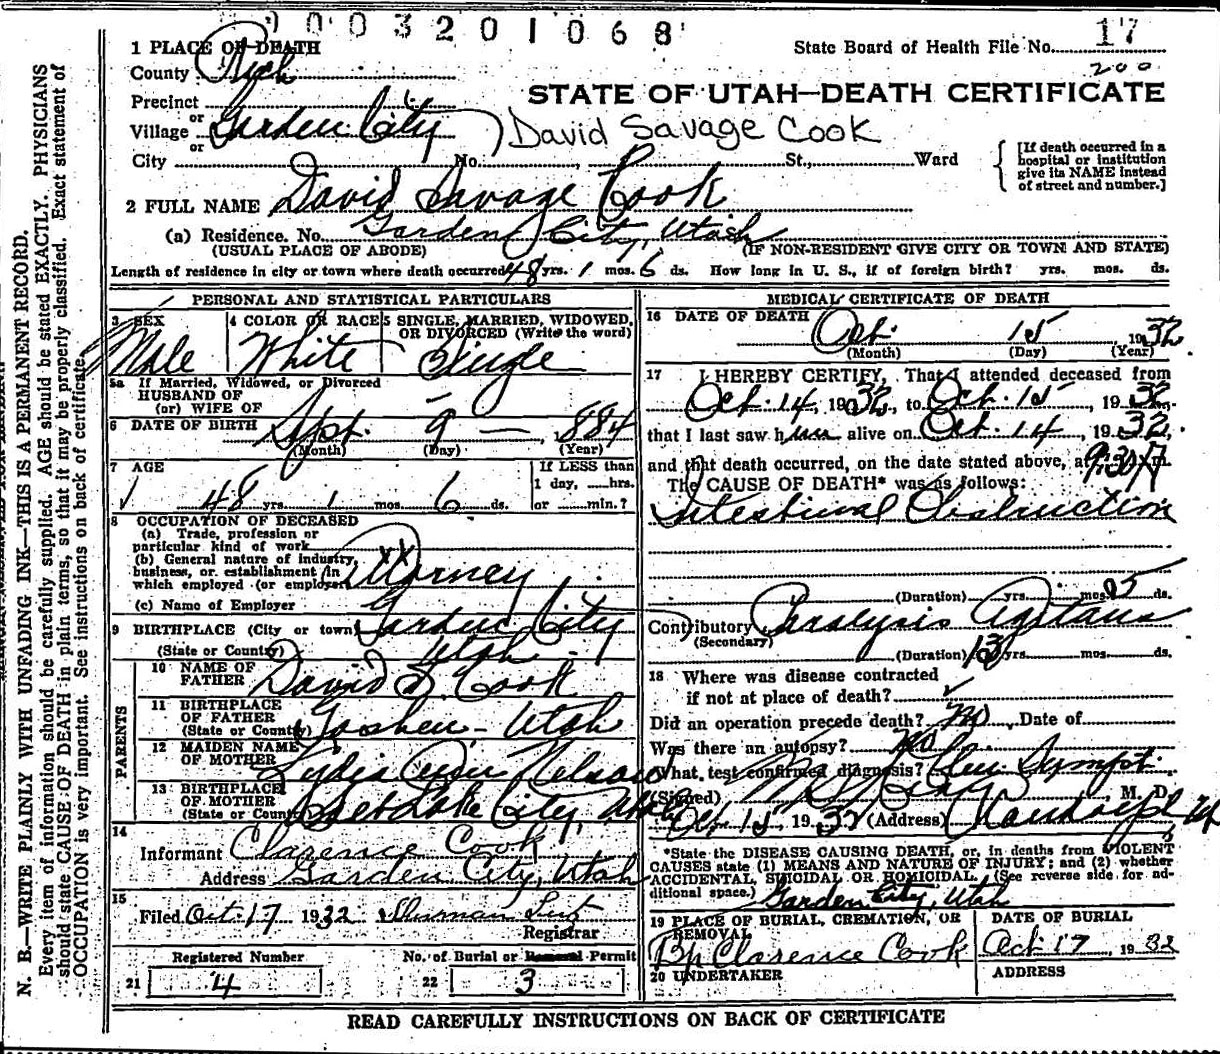 003201068
1 PLACE OF DEATH
State Board of Health File No. 17
200
County Rich
STATE OF UTAH—DEATH CERTIFICATE
Precinct
or
Village Garden City
or
David Savage Cook
City No. St., Ward
[If death occurred in a
hospital or institution
give its NAME instead
of street and number.]
2 FULL NAME David Savage Cook
(a) Residence. No. Garden City, Utah
(USUAL PLACE OF ABODE) (IF NON-RESIDENT GIVE CITY OR TOWN AND STATE)
Length of residence in city or town where death occurred 48 yrs. 1 mos. 6 ds. How long in U. S., if of foreign birth? yrs. mos. ds.
PERSONAL AND STATISTICAL PARTICULARS
3 SEX
Male
4 COLOR OR RACE
White
5 SINGLE, MARRIED, WIDOWED,
OR DIVORCED (Write the word)
Single
5a If Married, Widowed, or Divorced
HUSBAND OF
(or) WIFE OF
6 DATE OF BIRTH Sept. 9 — , 1884
(Month) (Day) (Year)
7 AGE
48 yrs. 1 mos. 6 ds.
If LESS than
1 day, hrs.
or min.?
8 OCCUPATION OF DECEASED
(a) Trade, profession or
particular kind of work
(b) General nature of industry,
business, or establishment in
which employed (or employer) Attorney
XX
(c) Name of Employer
9 BIRTHPLACE (City or town) Garden City
(State or Country) Utah
PARENTS
10 NAME OF
FATHER David S. Cook
11 BIRTHPLACE
OF FATHER
(State or Country) Goshen - Utah
12 MAIDEN NAME
OF MOTHER Lydia Nelson
13 BIRTHPLACE
OF MOTHER
(State or Country) Salt Lake City, Utah
14
Informant Clarence Cook
Address Garden City, Utah
15
Filed Oct 17 1932 Sherman
Registrar
Registered Number
21 4
No. of Burial or Removal Permit
22 3
MEDICAL CERTIFICATE OF DEATH
16 DATE OF DEATH Oct. 15 1932
(Month) (Day) (Year)
17 I HEREBY CERTIFY, That I attended deceased from
Oct. 14, 1932, to Oct. 15, 1932.
that I last saw him alive on Oct. 14, 1932,
and that death occurred, on the date stated above, at 9:30 m.
The CAUSE OF DEATH* was as follows:
Intestinal Obstruction
(Duration) yrs. mos. 5 ds.
Contributory Paralysis Agitans
(Secondary)
(Duration) 13 yrs. mos. ds.
18 Where was disease contracted
if not at place of death?
Did an operation precede death? No Date of
Was there an autopsy? No
What test confirmed diagnosis? Clin. Sympt.
(Signed) M. D.
Oct. 15 1932 (Address) Randolph Ut
*State the DISEASE CAUSING DEATH, or, in deaths from VIOLENT
CAUSES state (1) MEANS AND NATURE OF INJURY; and (2) whether
ACCIDENTAL, SUICIDAL OR HOMICIDAL. (See reverse side for ad-
ditional space.) Garden City, Utah
19 PLACE OF BURIAL, CREMATION, OR
REMOVAL
By Clarence Cook
DATE OF BURIAL
Oct 17, 1932
20 UNDERTAKER
ADDRESS
READ CAREFULLY INSTRUCTIONS ON BACK OF CERTIFICATE
N. B.—WRITE PLAINLY WITH UNFADING INK—THIS IS A PERMANENT RECORD.
Every item of information should be carefully supplied. AGE should be stated EXACTLY. PHYSICIANS
should state CAUSE OF DEATH in plain terms, so that it may be properly classified. Exact statement of
OCCUPATION is very important. See instructions on back of certificate.